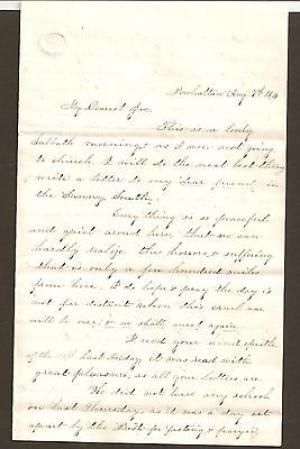 Powhattan Aug 7th 64
My Dearest Joe.
This is a lovely
Sabbath morning & as I am not going
to church I will do the next best thing
write a letter to my dear friend in
the Sunny South.
Everything is so peaceful
and quiet around here, that we can
hardly realize the horrors & suffering
that is only a few hundred miles
from here. I do hope & pray the day is
not far distant when this cruel war
will be over, & we shall meet again.
I recd your epistle
of the last Friday it was read with
great pleasure, as all your letters are.
We did not have any school
on last Thursday, as it was a day set
apart by the Prest for fasting & prayer